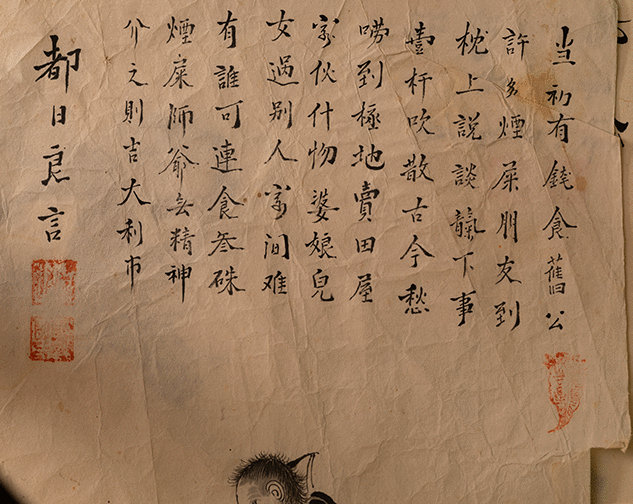 当初有錢食舊公
許多煙屎朋友到
枕上說談天下事
杆吹散古今愁
嘮到極地賣田屋
家伙什物婆娘兒
女過別人家间难
有誰可連食叁硃
煙屎師爺无精神
介之則吉大利市
都日良言